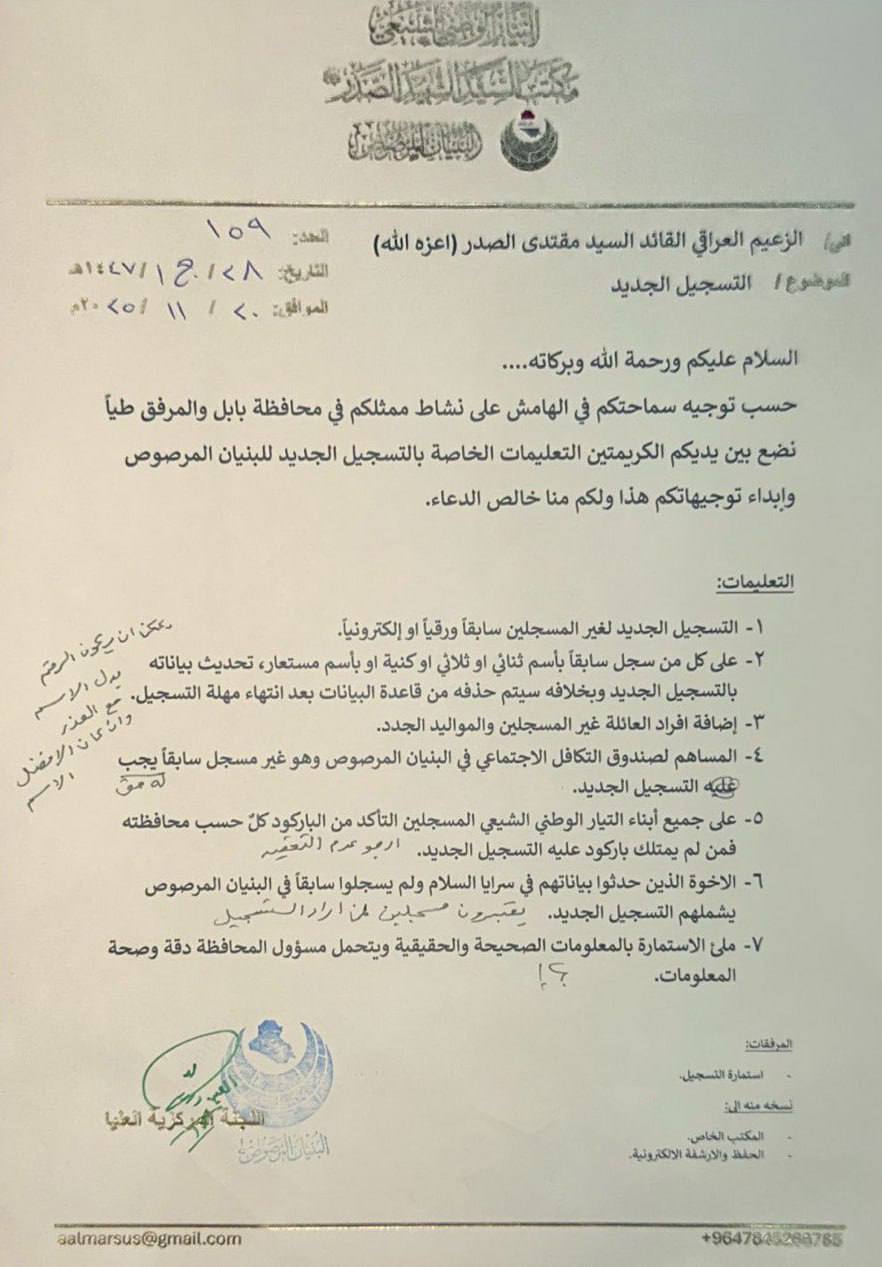 التيار الوطني الشيعي
مكتب السيد الشهيد الصدر
البنيان المرصوص
الى/ الزعيم العراقي القائد السيد مقتدى الصدر (اعزه الله)
الموضوع/ التسجيل الجديد
العدد: ١٥٩
التاريخ: ٢٨/ ج١ /١٤٤٧هـ
الموافق: ٢٠ / ١١ / ٢٠٢٥م
السلام عليكم ورحمة الله وبركاته....
حسب توجيه سماحتكم في الهامش على نشاط ممثلكم في محافظة بابل والمرفق طياً
نضع بين يديكم الكريمتين التعليمات الخاصة بالتسجيل الجديد للبنيان المرصوص
وإبداء توجيهاتكم هذا ولكم منا خالص الدعاء.
التعليمات:
١- التسجيل الجديد لغير المسجلين سابقاً ورقياً او إلكترونياً.
٢- على كل من سجل سابقاً بأسم ثنائي او ثلاثي او كنية او بأسم مستعار، تحديث بياناته
بالتسجيل الجديد وبخلافه سيتم حذفه من قاعدة البيانات بعد انتهاء مهلة التسجيل.
يمكن ان يكون الرقم
بدل الاسم
مع العذر
وان كان الافضل
الاسم
٣- إضافة افراد العائلة غير المسجلين والمواليد الجدد.
٤- المساهم لصندوق التكافل الاجتماعي في البنيان المرصوص وهو غير مسجل سابقاً يجب
عليه التسجيل الجديد.
له حق
٥- على جميع أبناء التيار الوطني الشيعي المسجلين التأكد من الباركود كلٌ حسب محافظته
فمن لم يمتلك باركود عليه التسجيل الجديد. ارجو عدم التعقيد
٦- الاخوة الذين حدثوا بياناتهم في سرايا السلام ولم يسجلوا سابقاً في البنيان المرصوص
يشملهم التسجيل الجديد. يعتبرون مسجلين لمن اراد التسجيل
٧- ملئ الاستمارة بالمعلومات الصحيحة والحقيقية ويتحمل مسؤول المحافظة دقة وصحة
المعلومات. ؟!
المرفقات:
- استمارة التسجيل.
نسخه منه الى:
- المكتب الخاص.
- الحفظ والارشفة الالكترونية.
اللجنة المركزية العليا
البنيان المرصوص
aalmarsus@gmail.com